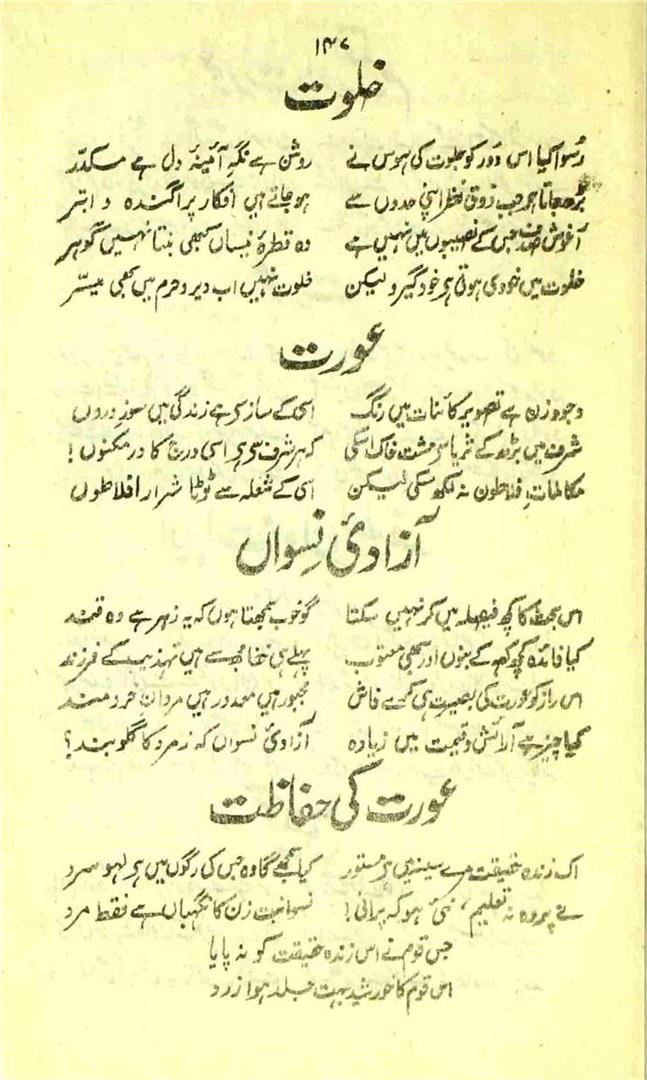 ۱۴۷
خلوت
رُسوا کیا اس دَور کو جلوت کی ہوس نے روشن ہے نگہ آئینۂ دل ہے مکدّر
بڑھ جاتا ہے جب ذوق نظر اپنی حدوں سے ہو جاتے ہیں افکار پراگندہ و ابتر
آغوش صدف جس کے نصیبوں میں نہیں ہے وہ قطرۂ نیساں کبھی بنتا نہیں گوہر
خلوت میں خودی ہوتی ہے خود گیر ولیکن خلوت نہیں اب دیر و حرم میں بھی میسّر
عورت
وجود زن سے ہے تصویر کائنات میں رنگ اسی کے ساز سے ہے زندگی میں سوز دروں
شرف میں بڑھ کے ثریا سے مشت خاک اسکی کہ ہر شرف ہے اسی درج کا در مکنوں!
مکالمات فلاطون نہ لکھ سکی لیکن اسی کے شعلہ سے ٹوٹا شرار افلاطوں
آزادیٔ نِسواں
اس بحث کا کچھ فیصلہ میں کر نہیں سکتا گو خوب سمجھتا ہوں کہ یہ زہر ہے وہ قند
کیا فائدہ کچھ کہہ کے بنوں اور بھی معتوب پہلے ہی خفا مجھ سے ہیں تہذیب کے فرزند
اس راز کو عورت کی بصیرت ہی کرے فاش مجبور ہیں معذور ہیں مردان خرد مند
کیا چیز ہے آرائش و قیمت میں زیادہ آزادیٔ نسواں کہ زمرد کا گلوبند؟
عورت کی حفاظت
اک زندہ حقیقت مرے سینہ میں ہے مستور کیا سمجھے گا وہ جس کی رگوں میں ہے لہو سرد
نے پردہ نہ تعلیم، نئی ہو کہ پرانی! نسوانیت زن کا نگہباں ہے فقط مرد
جس قوم نے اس زندہ حقیقت کو نہ پایا
اس قوم کا خورشید بہت جلد ہوا زرد